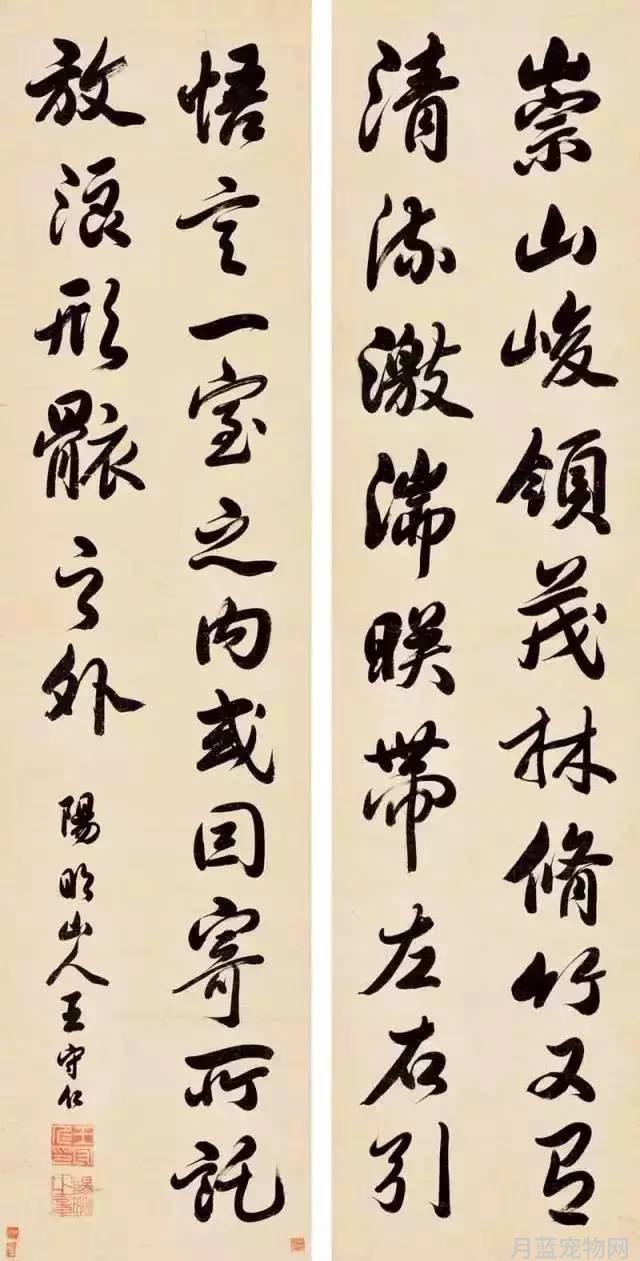 崇山峻領茂林脩竹又有
清流激湍暎帶左右引
悟言一室之内或因寄所託
放浪形骸之外
陽明山人王守仁
月蓝宠物网